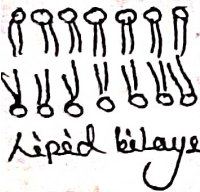 Lipid bilaye